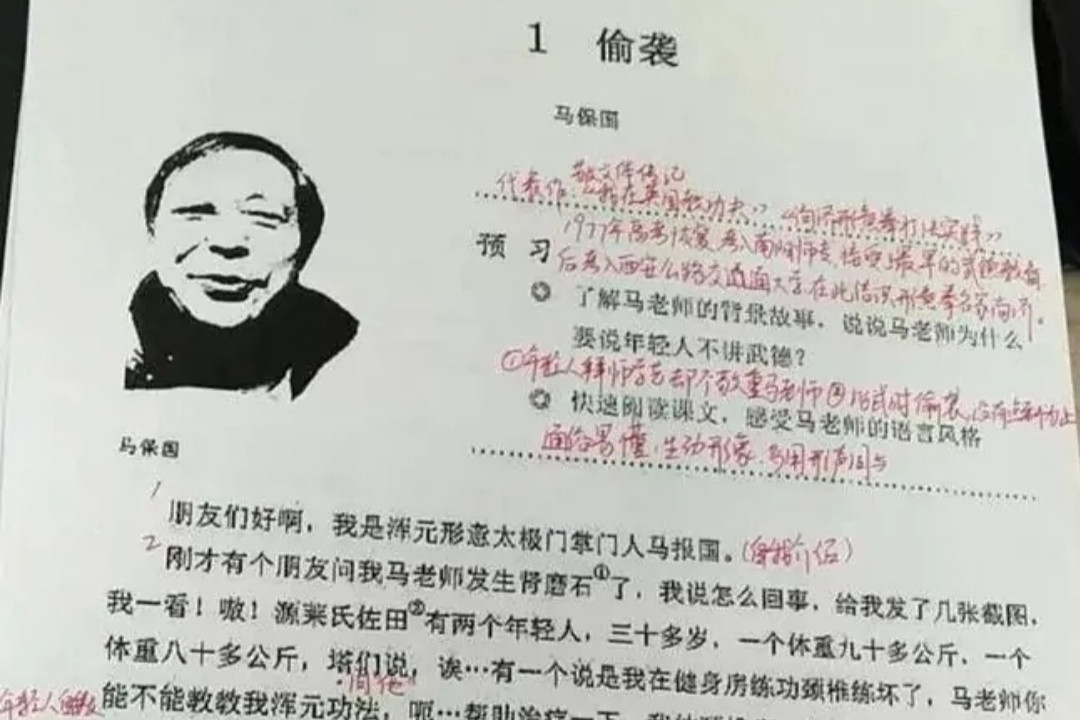 1 偷袭
马保国
散文 传记
代表作
预 习
1977年高考恢复
后考入西安公路交通 大学 在此结识形意拳名家尚济。
了解马老师的背景故事，说说马老师为什么
要说年轻人不讲武德？
①年轻人拜师学艺却不敬重马老师 ②比武时偷袒
快速阅读课文，感受马老师的语言风格
通俗易懂，生动形象，多用形声词
马保国
1
朋友们好啊，我是浑元形意太极门掌门人马报国。（自我介绍）
2
刚才有个朋友问我马老师发生肾磨石①了，我说怎么回事，给我发了几张截图，
我一看！嗷！源莱氏佐田②有两个年轻人，三十多岁，一个体重九十多公斤，一个
体重八十多公斤，塔们说，诶…有一个说是我在健身房练功颈椎练坏了，马老师你
年轻人
能不能教教我浑元功法，呃…帮助治疗一下